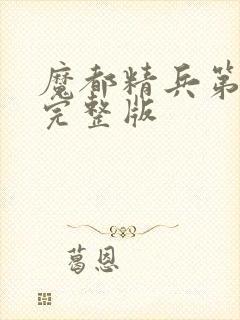 魔都精兵第
完整版
葛恩